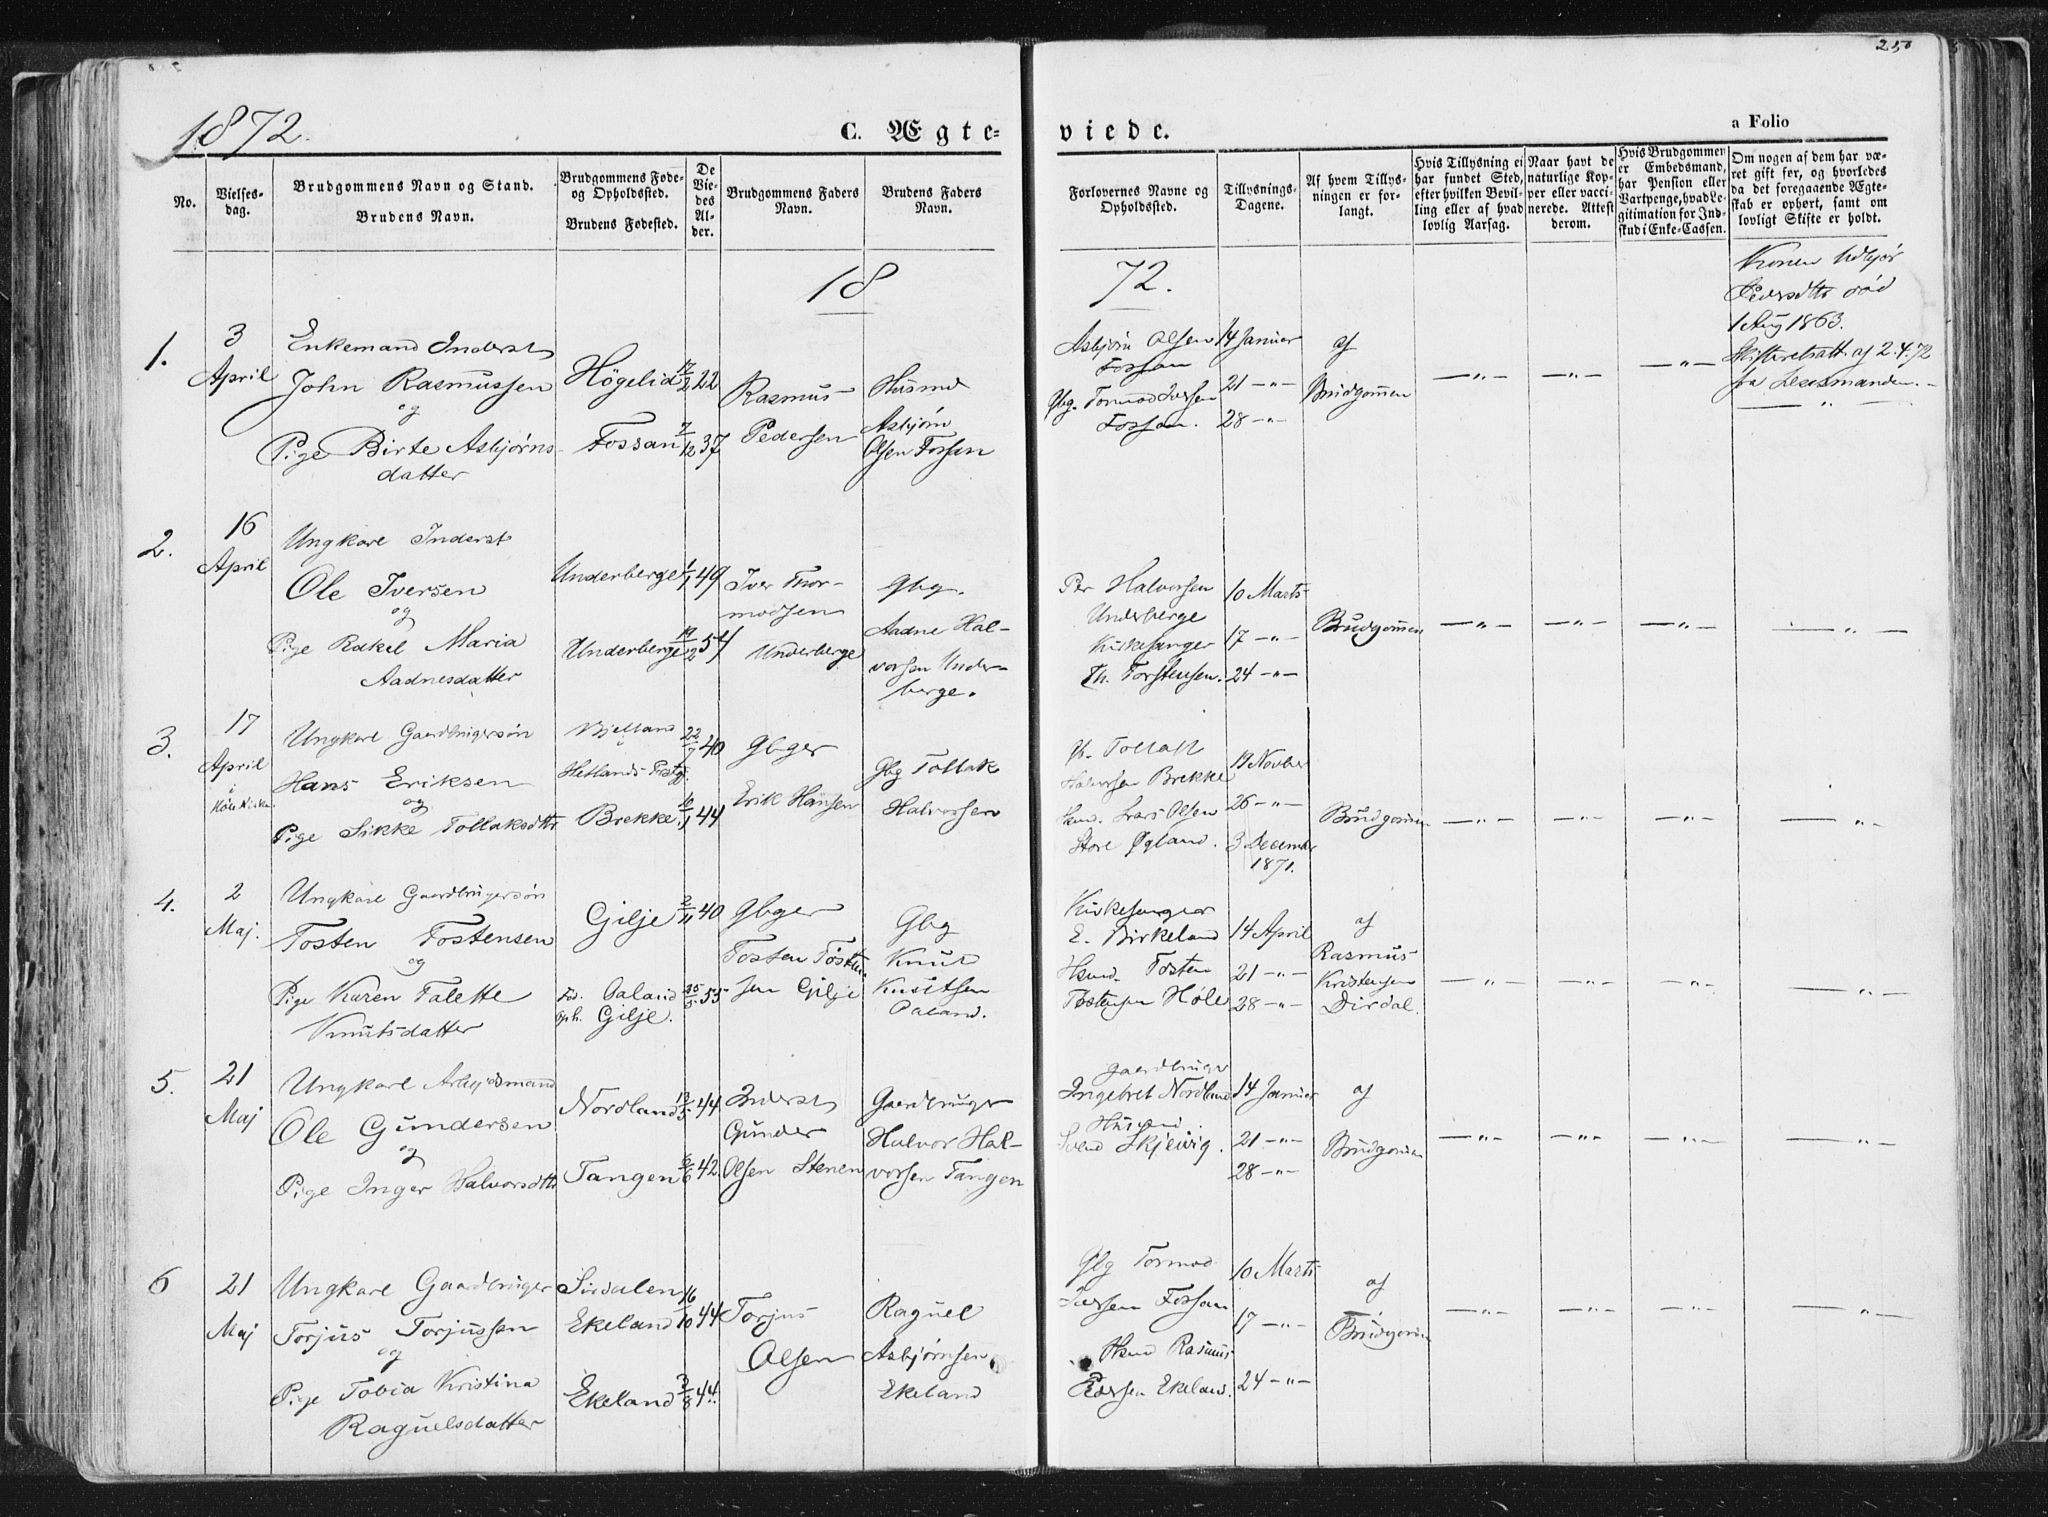 250
1872.
C. Ægte-
viede.
a Folio
No.
Vielses-
dag.
Brudgommens Navn og Stand.
Brudens Navn.
Brudgommens Føde-
og Opholdssted.
Brudens Fødested.
De
Vie-
des
Al-
der.
Brudgommens Faders
Navn.
Brudens Faders
Navn.
Forlovernes Navne og
Opholdssted.
Tillysnings-
Dagene.
Af hvem Tillys-
ningen er for-
langt.
Hvis Tillysning ei
har fundet Sted,
efter hvilken Bevil-
ling eller af hvad
lovlig Aarsag.
Naar havt de
naturlige Kop-
per eller vacci-
nerede. Attest
derom.
Hvis Brudgommen
er Embedsmand,
har Pension eller
Vartpenge, hvad Le-
gitimation for Ind-
skud i Enke-Cassen.
Om nogen af dem har væ-
ret gift før, og hvorledes
da det foregaaende Ægte-
skab er ophørt, samt om
lovligt Skifte er holdt.
18
72.
1.
3
April
Enkemand Inderst
John Rasmussen
og
Pige Birte Asbjørns-
datter
Högelid 12/2 22
Fossan 7/12 37
Rasmus
Pedersen
Husmd
Asbjörn
Olsen Fossan
Asbjörn Olsen
Fossan
Gbg. Tormod Iversen
Fossan.
14 Januar
21 -„-
28 -„-
af
Brudgommen
-„-
-„-
-„-
Konen
Pedersdtr död
1 Aug 1863.
Skifteretsatt. af 2.4.72
fra Lensmanden.
-„-
2.
16
April
Ungkarl Inderst
Ole Iversen
og
Pige Rakel Maria
Aadnesdatter
Underberge 1/1 49
Underberge 19/2 51
Iver Thor-
modsen
Underberge
Gbg.
Aadne Hal-
vorsen Under-
berge.
Per Halvorsen
Underberge
Kirkesanger
Th. Torstensen.
10 Marts
17 -„-
24 -„-
Brudgommen
-„-
-„-
-„-
-„-
3.
17
April
i
Høle Kirke
Ungkarl Gaardbrugersön
Hans Eriksen
og
Pige Sikke Tollaksdtr
Bjelland
i
Hetlands Prstgj.
22/7 40
Brekke. 10/1 44
Gbger
Erik Hansen
Gbg Tollak
Halvorsen
Gb. Tollak
Halvorsen Brekke
Hsmd. Lars Olsen
Store Øgland.
19 Novber
26 -„-
3 December
1871.
Brudgommen
-„-
-„-
-„-
-„-
4.
2
Maj.
Ungkarl Gaardbrugersön
Tosten Tostensen
og
Pige Karen Talette
Knutsdatter
Gilje 2/11 40
Fd. Paland
oph. Gilje.
25/5 55
Gbger
Tosten Tosten-
sen Gilje
Gbg
Knut
Knutsen
Paland.
Kirkesanger
E. Birkeland
Hsmd. Tosten
Tostensen Høle
14 April
21 -„-
28 -„-
af
Rasmus
Kristensen
Dirdal.
-„-
-„-
-„-
-„-
5.
21
Maj
Ungkarl Arbejdsmand
Ole Gundersen
og
Pige Inger Halvorsdtr
Nordland 13/5 44
Tangen 6/6 42
Inderst
Gunder
Olsen Stenen
Gaardbruger
Halvor Hal-
vorsen Tangen
Gaardbruger
Ingebret Nordland
Husmd.
Svend Skjeivig.
14 Januar
21 -„-
28 -„-
af
Brudgommen
-„-
-„-
-„-
-„-
6
21
Maj
Ungkarl Gaardbruger
Torjus Torjussen
og
Pige Tobia Kristina
Raguelsdatter
Sirdalen
Ekeland 16/10 44
Ekeland 3/8 44.
Torjus
Olsen
Raguel
Asbjörnsen
Ekeland
Gbg Tormod
Iversen Fossan
Hsmd Rasmus
Pedersen Ekeland.
10 Marts
17 -„-
24 -„-
af
Brudgommen
-„-
-„-
-„-
-„-